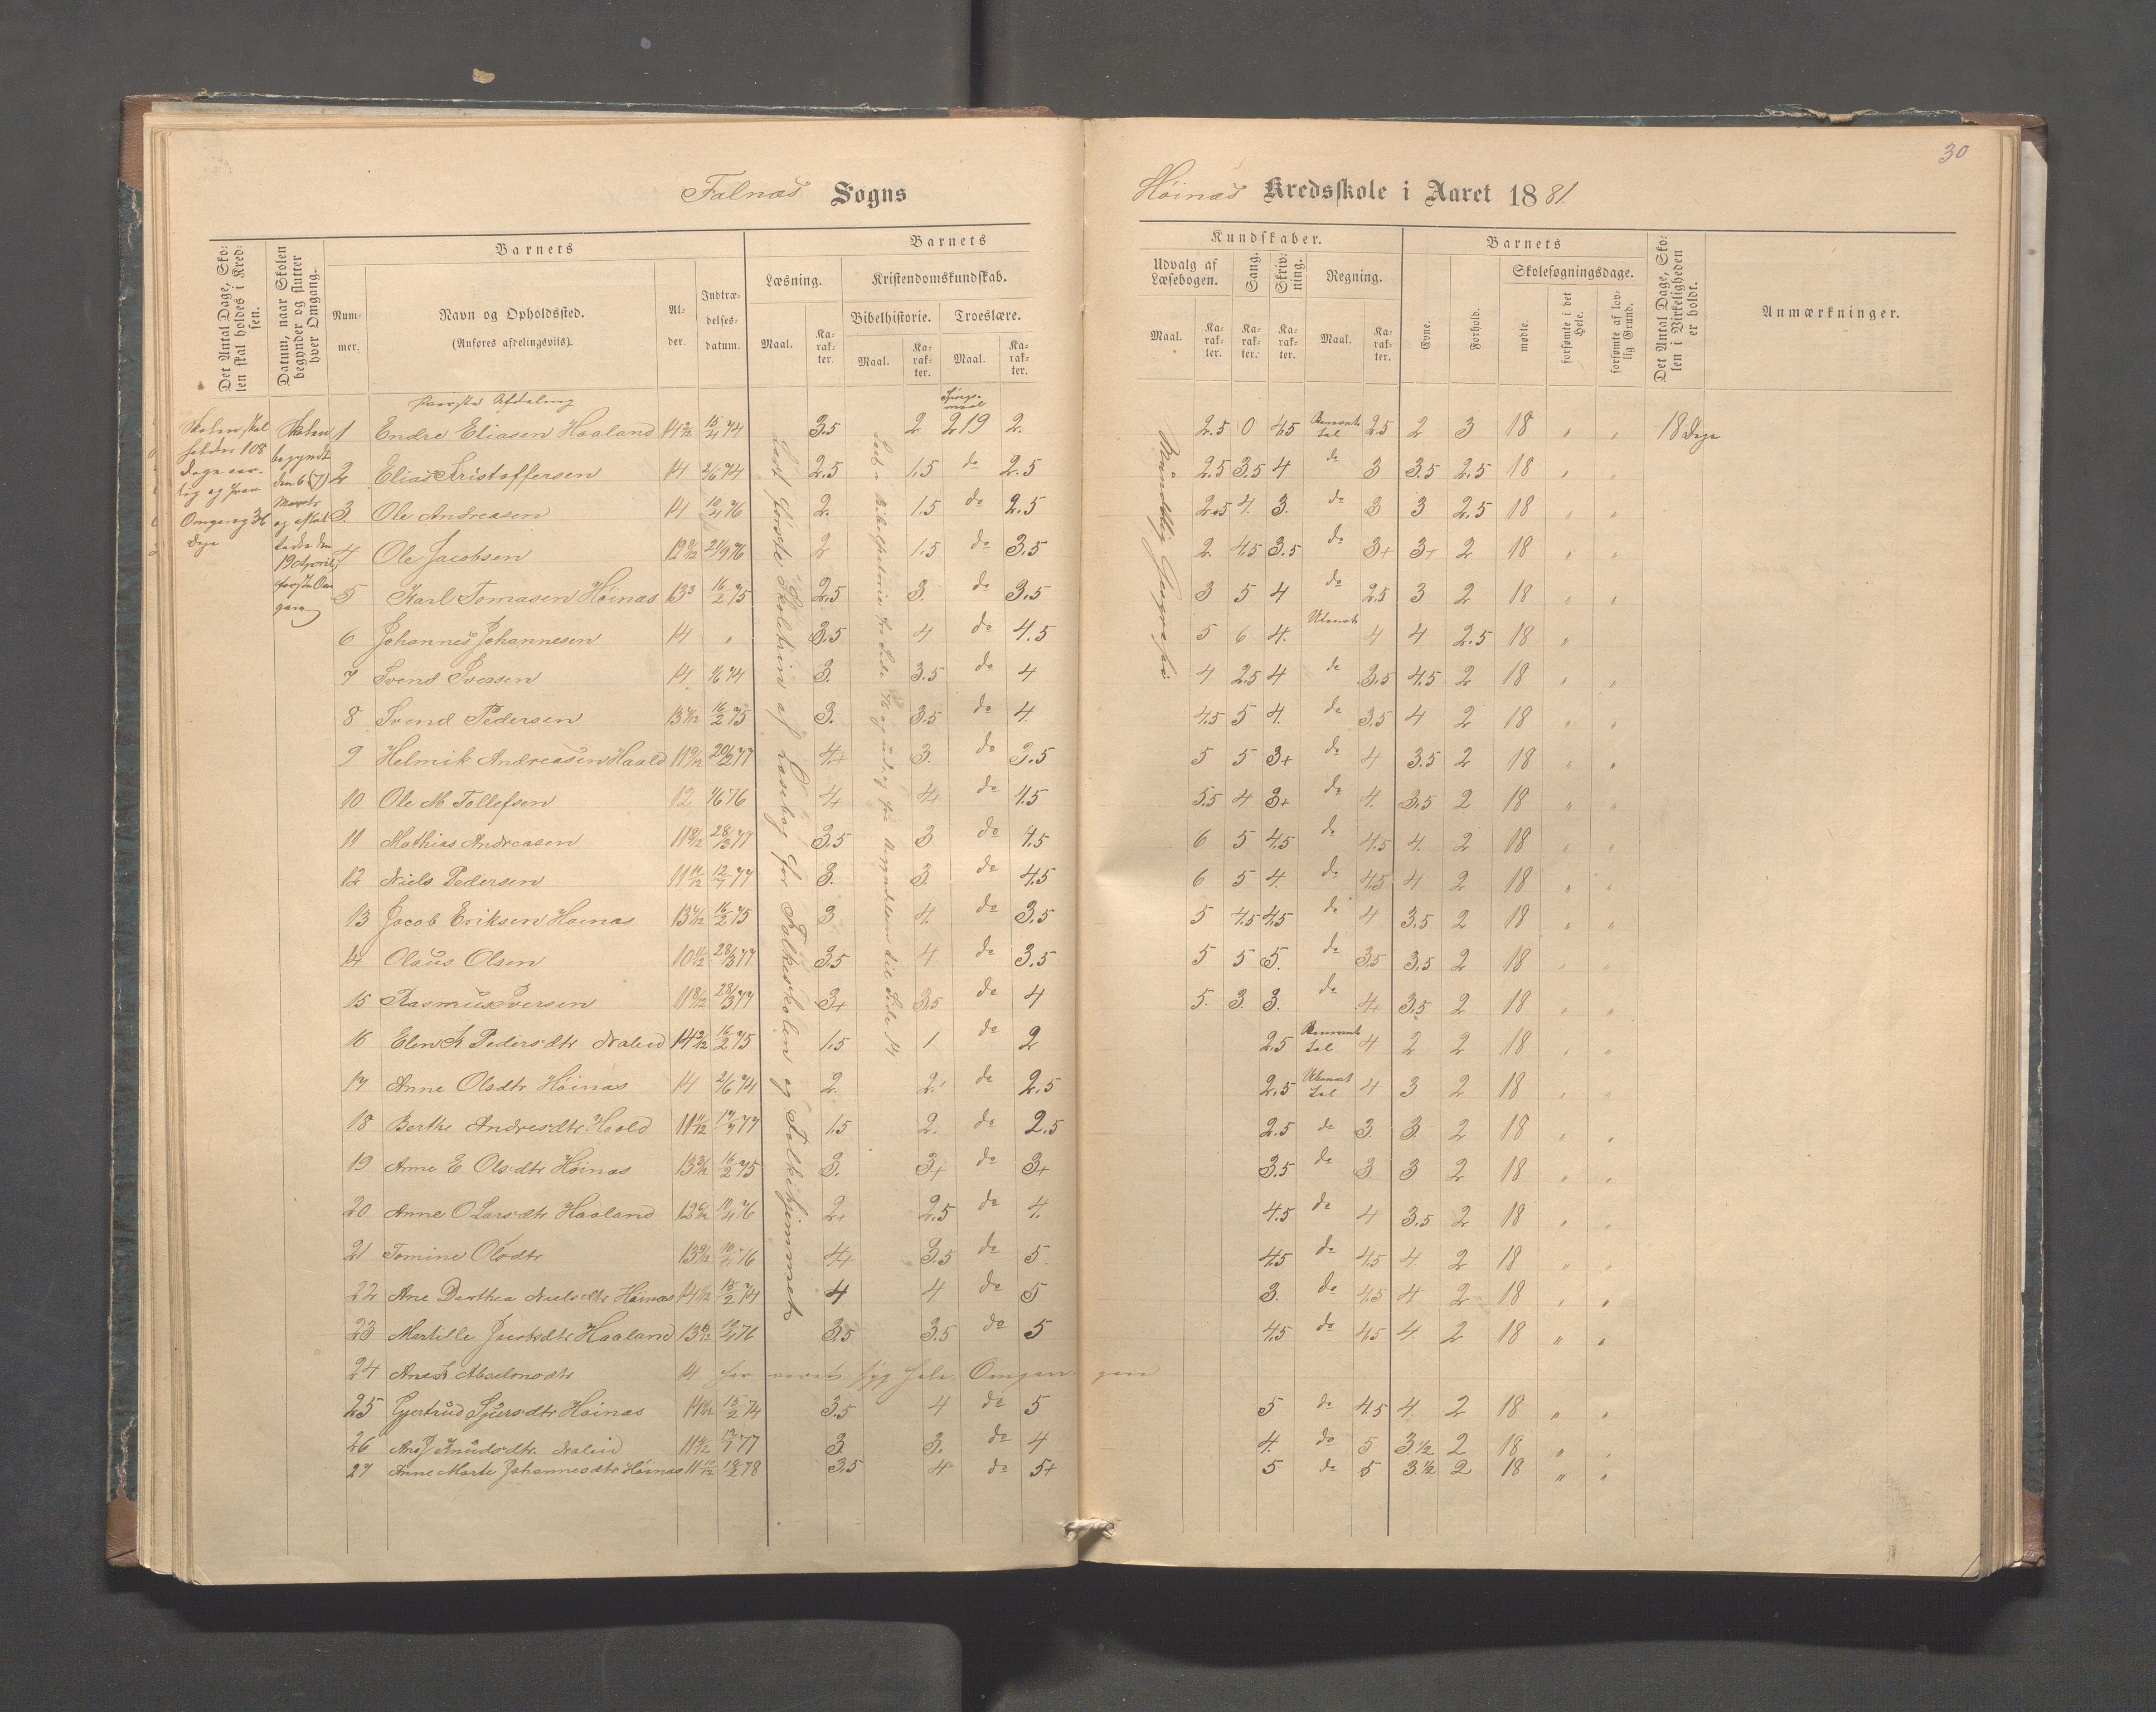 30
Falnæs Sogns
Høinæs Kredsskole i Aaret 1881.
Det Antal Dage, Sko-
len skal holdes i Kred-
sen.
Datum, naar Skolen
begynder og slutter
hver Omgang.
Barnets
Num-
mer.
Navn og Opholdssted.
(Anføres afdelingsviis).
Al-
der.
Indtræ-
delses-
datum.
Barnets
Læsning.
Maal.
Ka-
rak-
ter.
Kristendomskundskab.
Bibelhistorie.
Maal.
Ka-
rak-
ter.
Troeslære.
Maal.
Ka-
rak-
ter.
Kundskaber.
Udvalg af
Læsebogen.
Maal.
Ka-
rak-
ter.
Sang.
Ka-
rak-
ter.
Skriv-
ning.
Ka-
rak-
ter.
Regning.
Maal.
Ka-
rak-
ter.
Barnets
Evne.
Forhold.
Skolesøgningsdage.
mødte.
forsømte i det
Hele.
forsømte af lov-
lig Grund.
Det Antal Dage, Sko-
len i Virkeligheden
er holdt.
Anmærkninger.
Skolen skal
holdes 108
Dage aar-
lig og hver
Omgang 36
Dage
Skolen
begyndte
den 6 (7)
Marts
og
den
19 April
første Om
gang
Første Afdeling
Spørgs-
maal
Mundtlig Geografi
1 Endre Eliasen Haaland 14 2/12 15/4 74 3.5 2 219 2. 2.5 0 4.5 2.5 2 3 18 " " 18 Dage
2 Elias Kristoffersen 14 2/6 74 2.5 1.5 do 2.5 2.5 3.5 4 do 3 3.5 2.5 18 " "
3. Ole Andreasen 14 10/4 76 2. 1.5 do 2.5 2.5 4. 3. do 3. 3 2.5 18 " "
4 Ole Jacobsen 12 8/12 21/9 76 2 1.5 do 3.5 2 4.5 3.5 do 3+ 3+ 2 18 " "
5 Karl Tomasen Høinæs 13 3 16/2 75 2.5 3. do 3.5 3 5 4 do 2.5 3 2 18 " "
6 Johannes Johannesen 14 " 3.5 4 do 4.5 5 6 4. 4 4 2.5 18 "
7 Svend Iversen 14 1/6 74 3. 3.5 do 4 4 2.5 4 do 3.5 4.5 2 18 " "
8 Svend Pedersen 16/2 75 3. 3.5 do 4. 4.5 5 4. do 3.5 4 2 18 " "
9 Helmik Andreasen Haald 20/12 77 4+ 3. do 3.5 5 5 3+ do 4 3.5 2 18 " "
10 Ole M Tollefsen 12 1/6 76 4+ 4+ do 4.5 5.5 4 3+ do 4. 3.5 2 18 " "
11 Mathias Andreasen 11 8/12 28/3 77 3.5 3 do 4.5 6 5 4.5 do 4.5 4. 2 18 " "
12 Niels Pedersen 3. 3. do 4.5 6 5 4. do 4.5 4 2 18 " "
13 Jacob Eriksen Høinæs 16/2 75 3 4. do 3.5 5 4.5 4.5 do 4 3.5 2 18 " "
14 Olaus Olsen 28/3 77 3.5 4 do 3.5 5 5 5. do 3.5 3.5 2 18 " "
15 Rasmus Iversen 11 8/12 28/3 77 3+ 3.5 do 4 5. 3. 3. do 4+ 3.5 2 18 " "
16 Elen K Pedersdtr 14 2/12 16/2 75 1.5 1 do 2 2.5 4 2 2 18 " "
17 Anne Olsdtr Høinæs 14 2/6 74 2. 2. do 2.5 2.5 4 3 2 18 " "
18 Berthe Andreasdtr Haald 1.5 2. do 2.5 2.5 do 3. 3. 2 18 " "
19 Anne E Olsdtr Høinæs 16/2 75 3. 3+ do 3+ 3.5 do 3 3 2 18 " "
20 Anne O Larsdtr Haaland 2+ 2.5 do 4. 4.5 do 4 3.5 2 18 " "
21 Tomine Olsdtr 10/4 76 4+ 3.5 do 5. 4.5 do 4.5 4. 2 18 " "
22 Ane Dorthea Nielsdtr Høinæs 15/2 74 4 4. do 5 3. do 4.5 4 2 18 " "
23 Martille Jacobsdtr Haaland 3.5 3.5 do 5 4.5 do 4.5 4. 2 18 " "
24 Ane K Absalonsdtr 14 har været syg hele Omgan gen
25 Gjertrud Sjursdtr Høinæs 15/2 74 3.5 4 do 5 5 do 4.5 4. 2 18 " "
26 Ane J Knudsdtr. 3. 3. do 4 4. do 5 3.1/2 2 18 " "
27 Anne Marte Johannesdtr Høinæs 3.5 4 do 5+ 5 do 5 3.1/2 2 18 " "